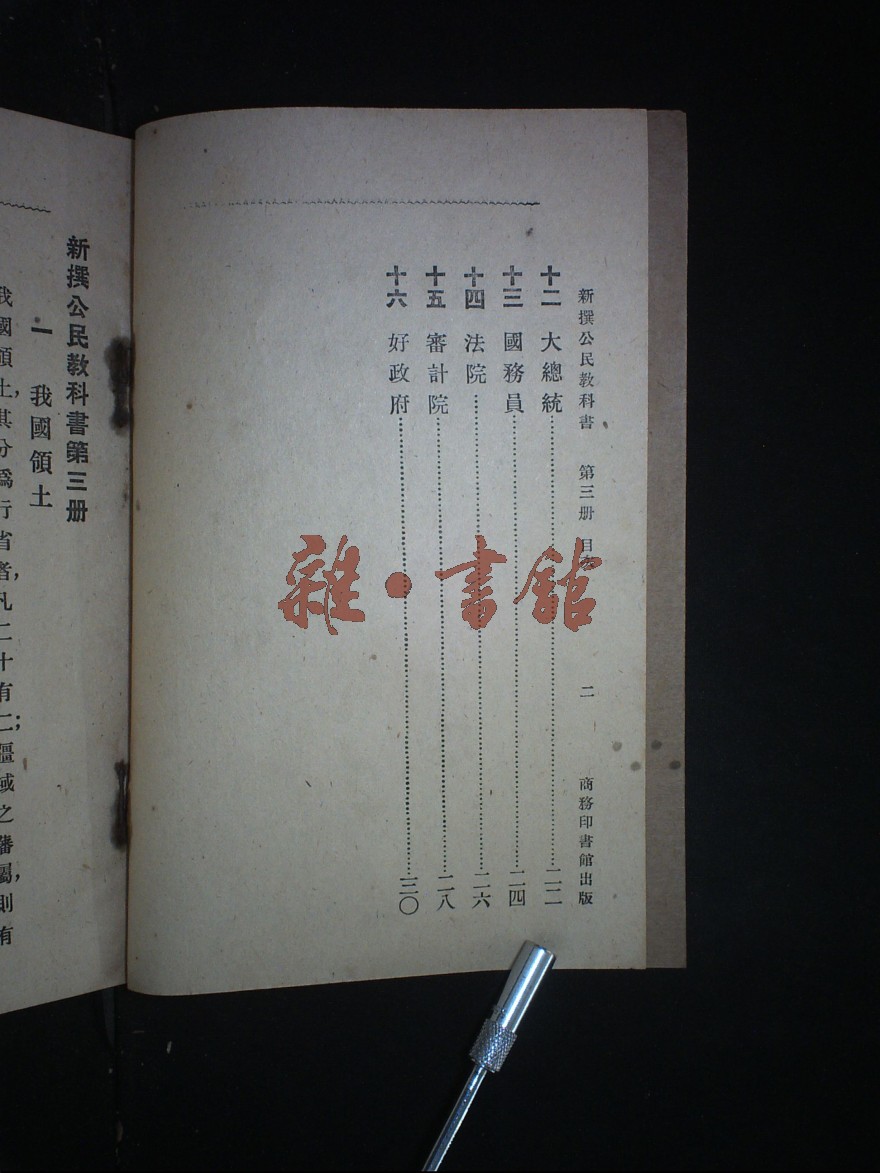 新撰公民敎科書 第三册 目 二 商務印書館出版
十二 大總統……二二
十三 國務員……二四
十四 法院……二六
十五 審計院……二八
十六 好政府……三〇
新撰公民敎科書第三册
一 我國領土
我國領土,其分爲行省者,凡二十有二;疆域之藩屬,則有
雜·書館